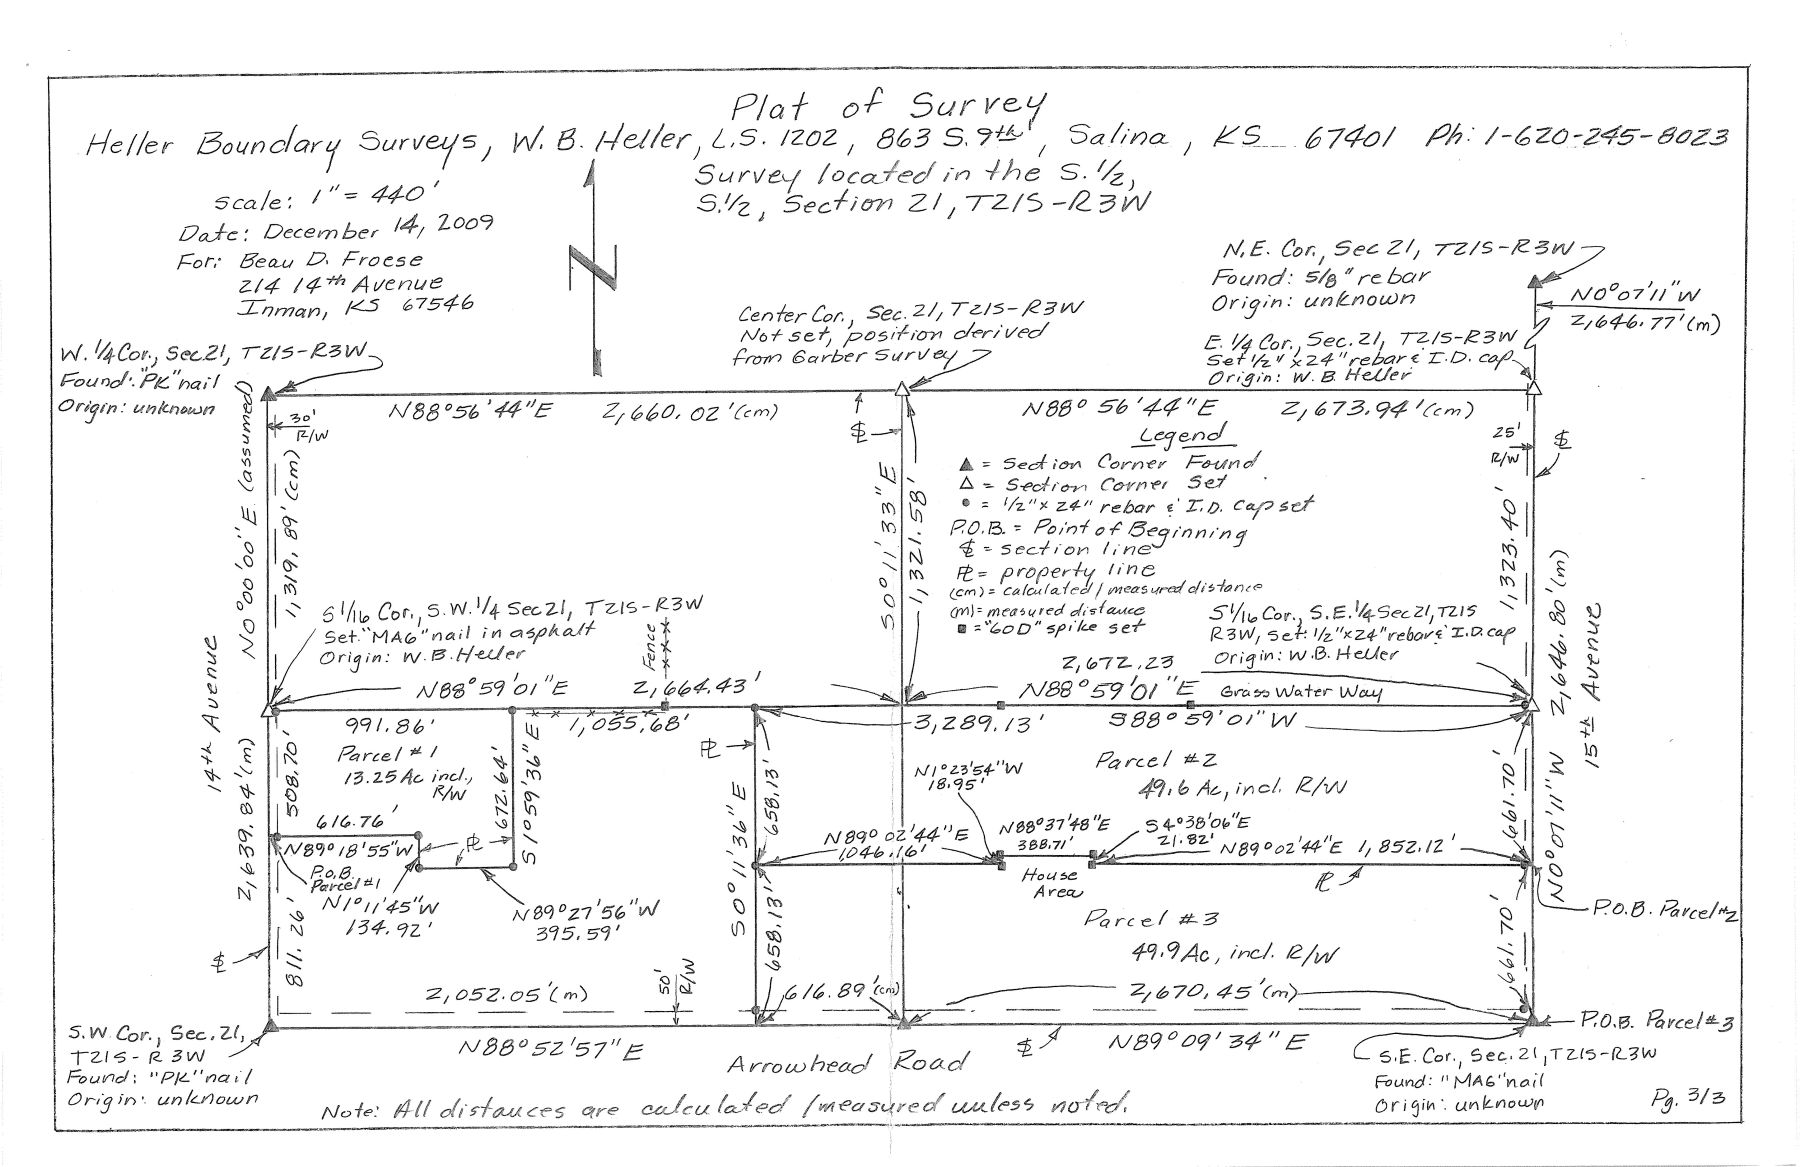 Plat of Survey
Heller Boundary Surveys, W. B. Heller, L.S. 1202, 863 S. 9th, Salina, KS 67401 Ph: 1-620-245-8023
Survey located in the S.1/2,
S.1/2, Section 21, T21S-R3W
scale: 1" = 440'
Date: December 14, 2009
For: Beau D. Froese
214 14th Avenue
Inman, KS 67546
N
N.E. Cor., Sec 21, T21S-R3W
Found: 5/8" rebar
Origin: unknown
N0°07'11"W
2,646.77'(m)
Center Cor., Sec. 21, T21S-R3W
Not set, position derived
from Garber Survey
E. 1/4 Cor., Sec. 21, T21S-R3W
Set 1/2" x 24" rebar & I.D. cap
Origin: W. B. Heller
W. 1/4 Cor., Sec 21, T21S-R3W
Found: "PK" nail
Origin: unknown
N88°56'44"E 2,660.02'(cm)
N88°56'44"E 2,673.94'(cm)
30'
R/W
25'
R/W
Legend
= Section Corner Found
= Section Corner Set
= 1/2" x 24" rebar & I.D. cap set
P.O.B. = Point of Beginning
= section line
PL = property line
(cm) = calculated / measured distance
(m) = measured distance
= "60D" spike set
N0°00'00"E (assumed)
1,319.89'(cm)
S0°11'33"E
1,321.58'
1,323.40'
2,646.80'(m)
N0°01'11"W
15th Avenue
14th Avenue
2,639.84'(m)
S1/16 Cor., S.W.1/4 Sec 21, T21S-R3W
Set: "MAG" nail in asphalt
Origin: W. B. Heller
Fence
S1/16 Cor., S.E.1/4 Sec 21, T21S
R3W, Set: 1/2" x 24" rebar & I.D. cap
Origin: W. B. Heller
N88°59'01"E 2,664.43'
2,672.23
N88°59'01"E Grass Water Way
991.86'
1,055.68'
3,289.13' S88°59'01"W
508.70'
Parcel #1
13.25 Ac incl.,
R/W
672.64'
S1°59'36"E
PL
616.76'
N89°18'55"W
P.O.B.
Parcel #1
N1°11'45"W
134.92'
PL
N89°27'56"W
395.59'
811.26'
S0°11'36"E
658.13'
658.13'
Parcel #2
49.6 Ac, incl. R/W
N1°23'54"W
18.95'
N89°02'44"E
1046.16'
N88°37'48"E
388.71'
S4°38'06"E
21.82'
N89°02'44"E 1,852.12'
House
Area
PL
661.70'
661.70'
P.O.B. Parcel #2
Parcel #3
49.9 Ac, incl. R/W
50'
R/W
2,052.05'(m)
616.89'(cm)
2,670.45'(m)
P.O.B. Parcel #3
S.W. Cor., Sec. 21,
T21S-R3W
Found: "PK" nail
Origin: unknown
N88°52'57"E
Arrowhead Road
N89°09'34"E
S.E. Cor., Sec. 21, T21S-R3W
Found: "MAG" nail
Origin: unknown
Note: All distances are calculated / measured unless noted.
Pg. 3/3